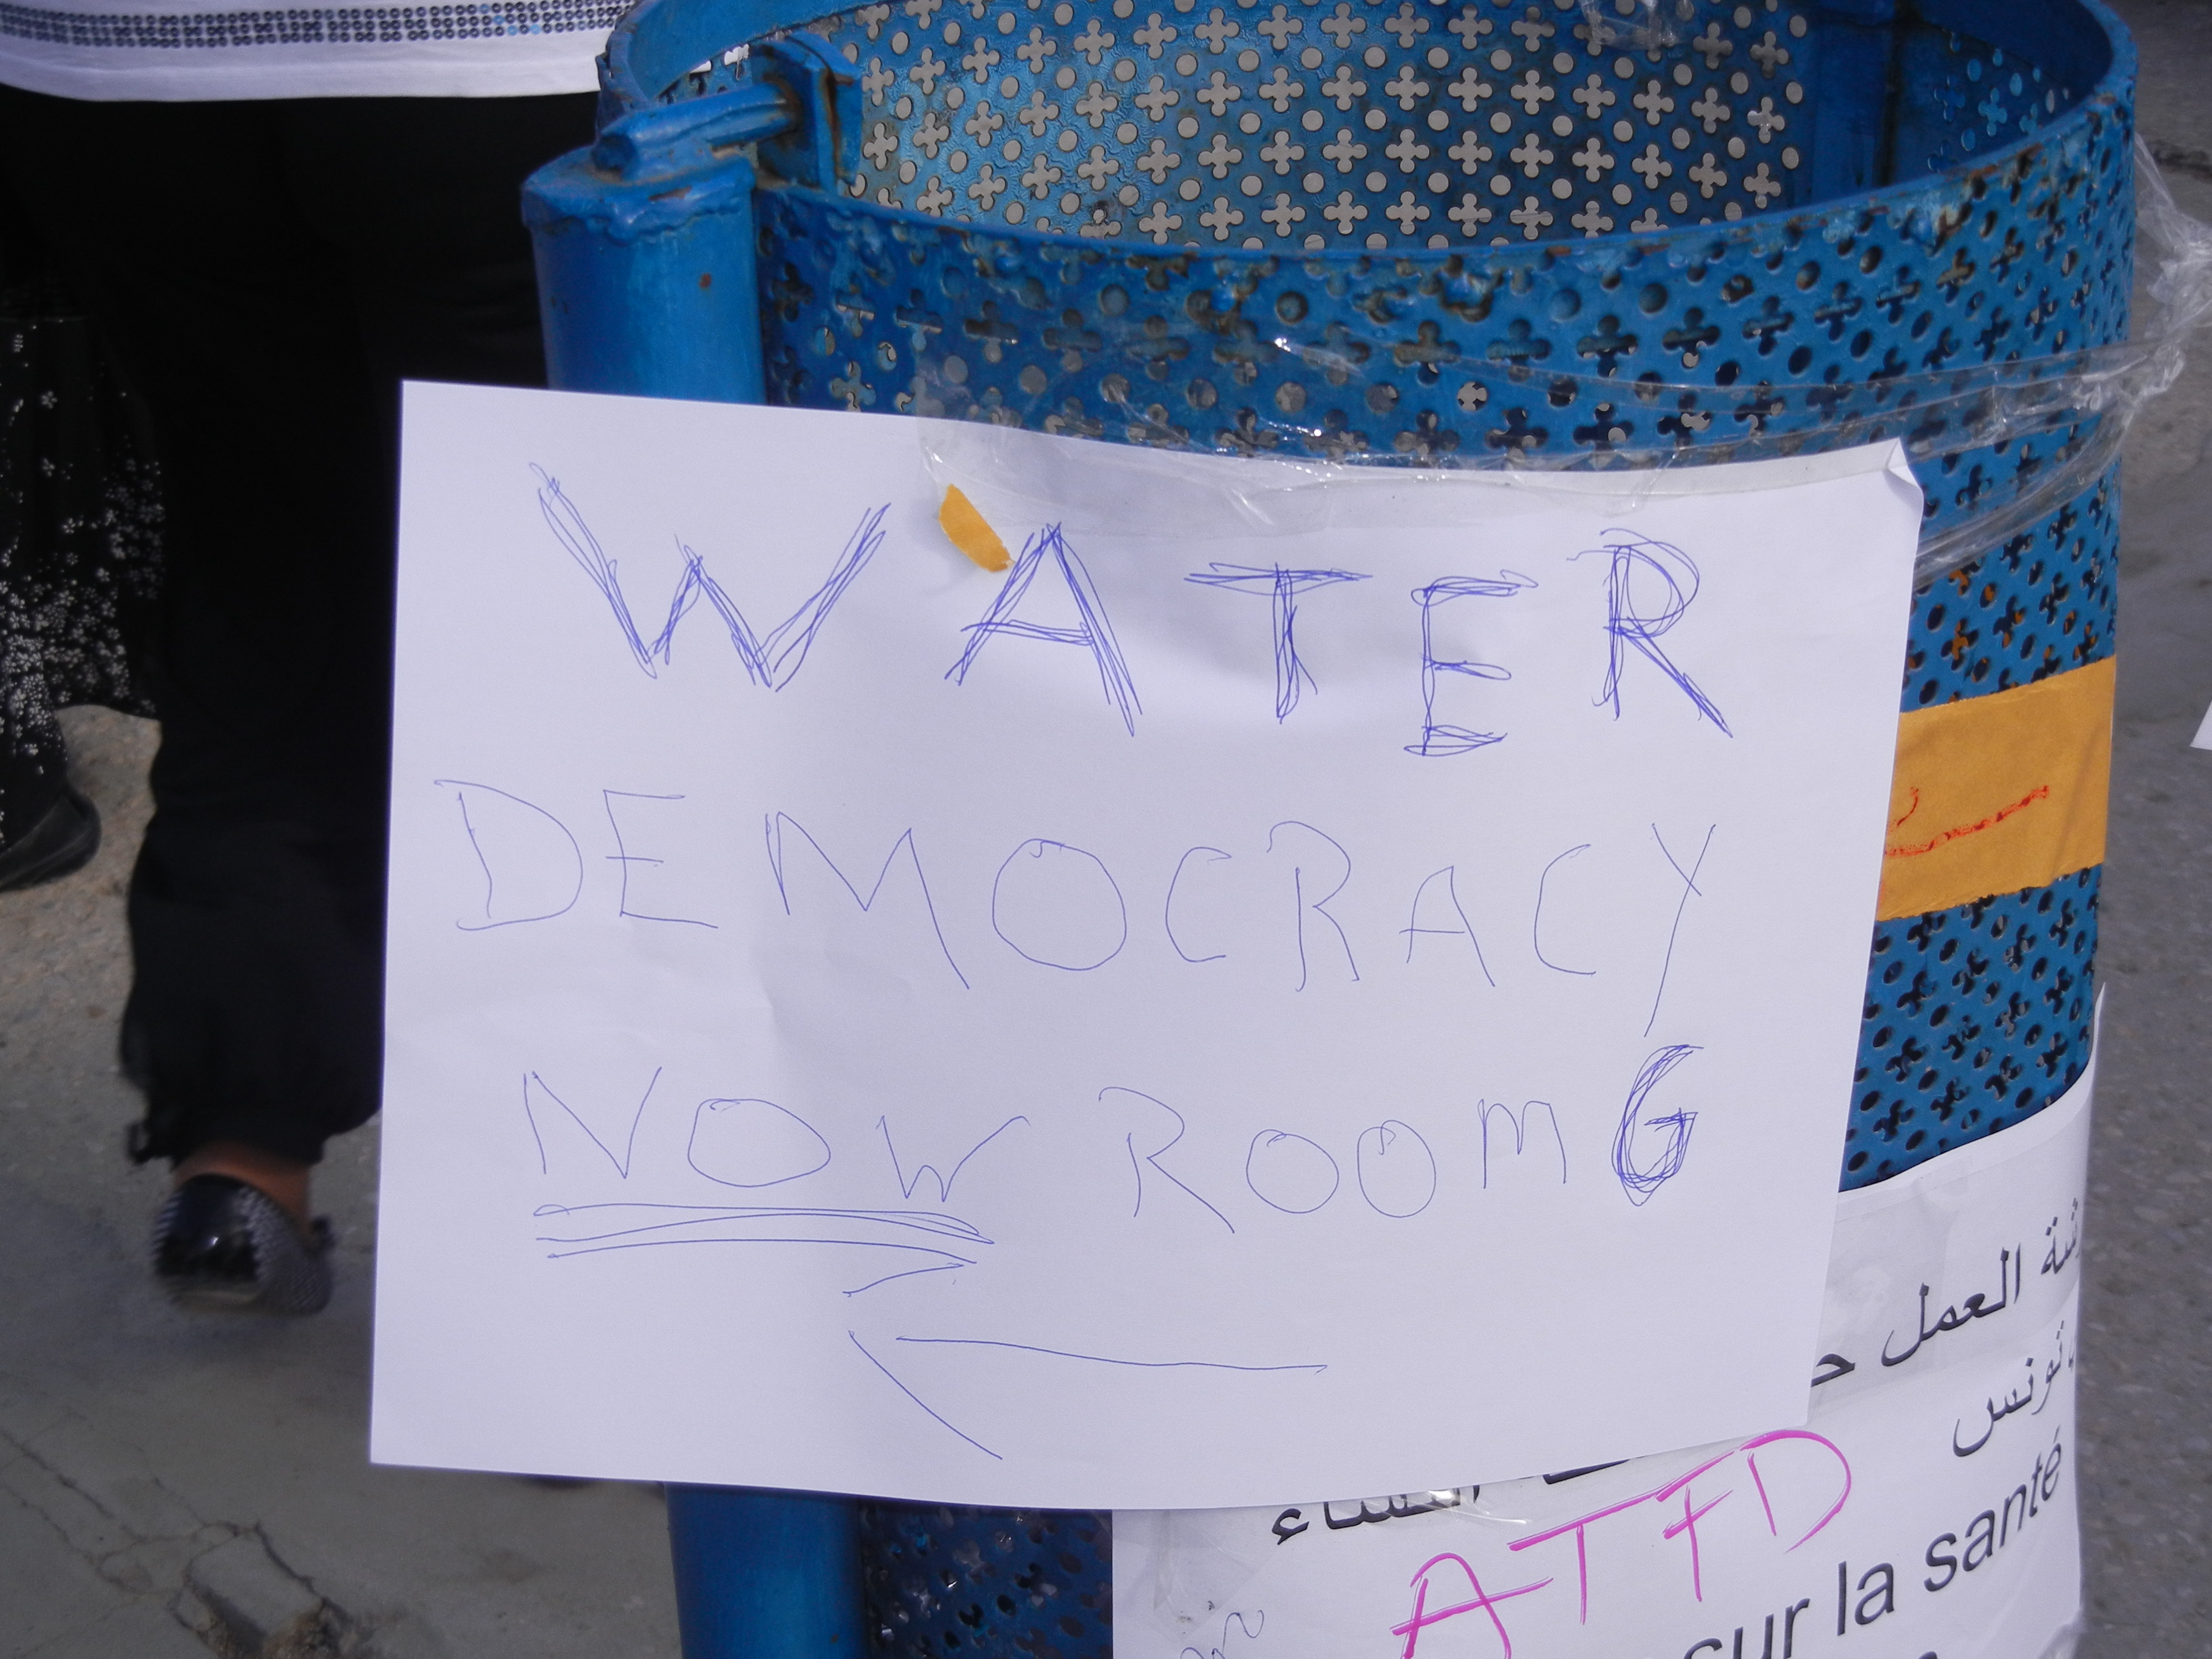 WATER
DEMOCRACY
NOW ROOM G
العمل
تونس
ATFD
sur la santé